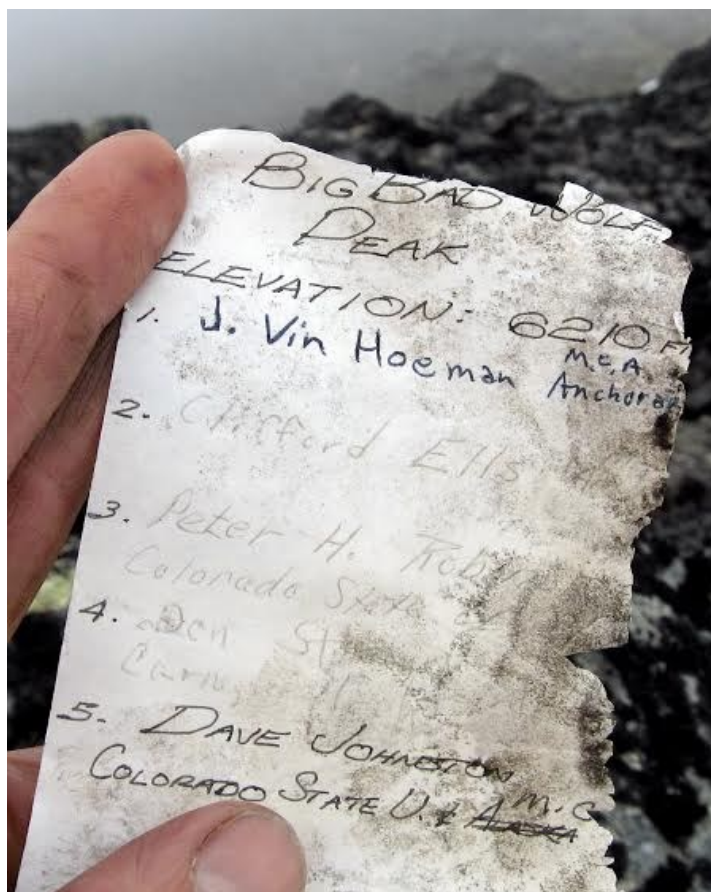 BIG BAD WOLF
PEAK
ELEVATION: 6210 FT
1. J. Vin Hoeman M.C.A.
Anchorag
2. Clifford Ells
3. Peter H. Rob
Colorado State
4. St
5. DAVE JOHNSTON M.C
COLORADO STATE U. &